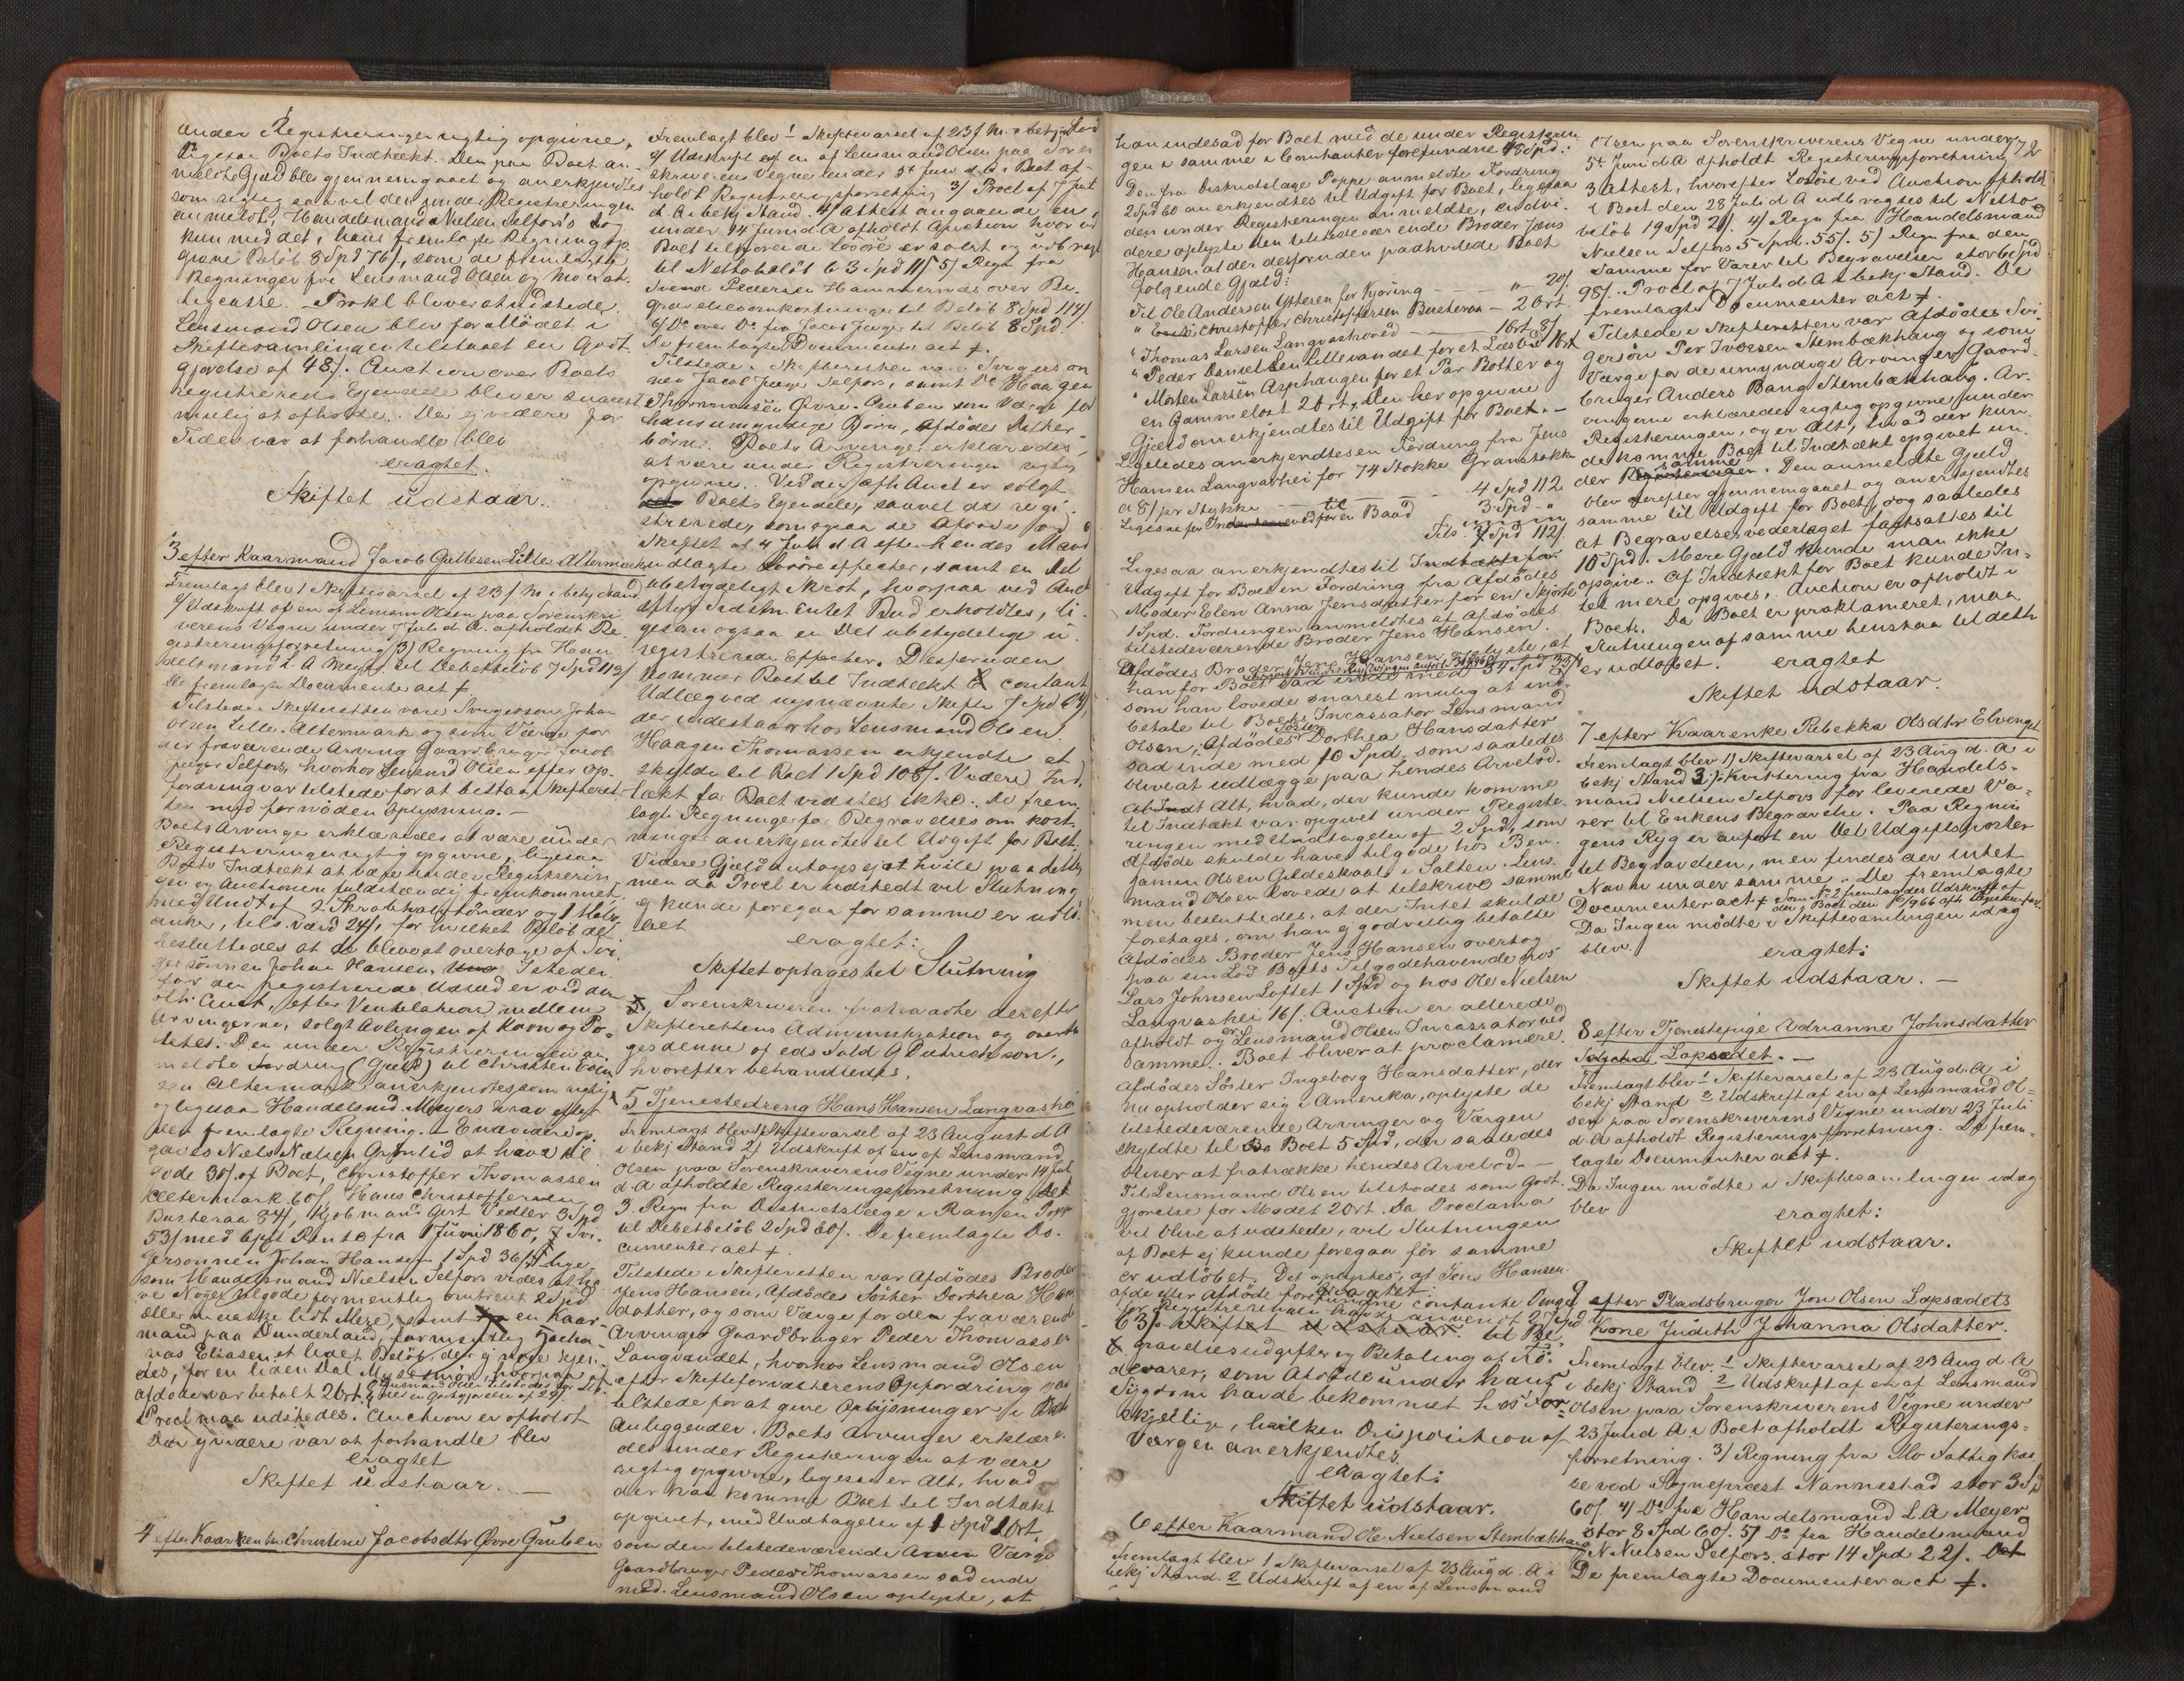 under Registreringen rigtig opgivne,
ligesaa Boets Indtækt. Den paa Boet an
meldte Gjæld blev gjennemgaaet og anerkjendtes
som rigtig saavel den under Registreringen
anmeldte, Handelsmand Nielsen Selfors dog
kun med det, hans fremlagte Regning op
givne Beløb 8 Spd 76 /, som de fremlagte
Regninger fra Lensmand Olsen og Mo
. Prokl bliver at udstede.
Lensmand Olsen blev for Mødet i
Skiftesamlingen tilstaaet en Godt
gjørelse af 48 /. Auction over Boets
registrerede Eiendele bliver snarest
mulig at afholde. Da ej videre for
Tiden var at forhandle blev
eragtet.
Skiftet udstaar.
3 efter Kaarmand Jacob Lille Altermark
Fremlagt blev 1 Skiftevarsel af 23 / M. i bekj Stand
2/ Udskrift af en af Lensm Olsen paa Sorenskri
verens Vegne under 7 Juli d. A. afholdt Re
gistreringsforretning 3) Regning fra Han
delsmand L A Meyer til Debetbeløb 7 Spd 112 /
De fremlagte Documenter act ⨍.
Tilstede i Skifteretten vare Svigersøn Johan
Lille Altermark og som Værge for
den fraværende Arving Gaardbruger Jacob
Selfors, hvorhos Lensmd Olsen efter Op
fordring var tilstede for at bistaa Skifteret
ten med fornøden Oplysning. —
Boets Arvinger erklæredes at være under
Registreringen rigtig opgivne, ligesaa
Boets Indtækt at være under Registrerin
gen og Auctionen fuldstændig fremkommet,
med Undt af 2 tønder og 1 Halv
anker, tils. værd 24 /, for hvilket Beløb det
besluttedes at de blev at overtage af Svi
gersønnen Johan Hansen. Isteden
for den registrerede Udsæd er ved den
afh. Auct, efter Ventilation mellem
Arvingerne, solgt Avlingen af Korn og Po
tetes. Den under Registreringen an
meldte Fordring (Gjæld) til Christen
sen Altermark anerkjendtes som rigtig
og ligesaa Handelsmd Meyers Krav efter
den fremlagte Regning. Endvidere op
gaves Niels Nielsen Grønlid at have til
gode 30 / af Boet, Christoffer Thomassen
Altermark 60 /, Hans Christoffersen
Busteraa 84 /, Kjøbmand Gert Vedler 3 Spd
53 / med Rente fra 1 Juni 1860, Svi
gersønnen Johan Hansen 1 Spd 36 /, lige
som Handelsmand Nielsen Selfors vides at ha
ve Noget tilgode formentlig omtrent 2 Spd
eller maaske lidt Mere, samt en Kaar
mand paa Dunderland, formentlig Zacha
rias Eliasen et lidet Beløb, der ej nøie kjen
des, for en liden Dal Mysesmør, hvorpaa af
afdøde var betalt 2 Ort.
Procl maa udstedes. Auction er afholdt
Da ej videre var at forhandle blev
eragtet
Skiftet udstaar. —
4 efter Kaarkenke Christine Jacobsdtr Øvre Gruben
Fremlagt blev 1 Skiftevarsel af 23 / M. i bekj Stand
2/ Udskrift af en af Lensmand Olsen paa Soren
skriverens Vegne under 5te Juni d. A. i Boet af
holdt Registreringsforretning 3/ Procl af 7 Juli
d A i bekj Stand. 4/ Attest angaaende en
under 14 Juni d. A. afholdt Auction hvor ved
Boet tilhørende Løsøre er solgt og udbragt
til Nettobeløb 63 Spd 11 / 5/ Regn fra
Svend Pedersen Hammernes over Be
gravelsesomkostninger til Beløb 8 Spd 114 /
6/ Do over Do fra Jacob til Beløb 8 Spd.
De fremlagte Documenter act ⨍.
Tilstede i Skifteretten vare Svigersøn
nen Jacob Selfors, samt Do Haagen
Thomassen Øvre Gruben som Værge for
hans umyndige Børn, Afdødes Datter
børn. Boets Arvinger erklæredes
at være under Registreringen rigtig
opgivne. Ved den afh Auct er solgt
Boets Eiendele, saavel de regi
strerede, som ogsaa de Afdøde
Skiftet af 4 Juli d A efter hendes Mand
udlagte Løsøreeffecter, samt en Del
ubetydeligt Skrot, hvorpaa ved Auct
efter Intet Bud erholdtes, li
gesom ogsaa en Del ubetydelige u
registrerede Effecter. Desforuden
kommer Boet til Indtækt contant
Udlæg ved nysnævnte Skifte 7 Spd /,
der indestaar hos Lensmand Olsen.
Haagen Thomassen erkjendte at
skylde til Boet 1 Spd 108 /. Videre Ind
tækt for Boet vidstes ikke. De frem
lagte Regninger for Begravelsesomkost
ninger anerkjendtes til Udgift for Boet.
Videre Gjæld antages ej at hvile paa dette
men da Procl er udstedt vil Slutning
ej kunde foregaa før samme er udlø
bet
eragtet:
Skiftet optages til Slutning
Sorenskriveren fratraadte derefter
Skifterettens Administration og overto
ges denne af eds. Fuld G Didrichson,
hvorefter behandledes.
5 Tjenestedreng Hans Hansen Langvashei
Fremlagt blev 1/ Skiftevarsel af 23 August d A
i bekj Stand 2/ Udskrift af en af Lensmand
Olsen paa Sorenskriverens Vegne under 14 Juli
d. A. afholdte Registreringsforretning
3. Regn fra Districtslæge i Ranen Poppe
til Debetbeløb 2 Spd 60 /. De fremlagte Do
cumenter act ⨍.
Tilstede i Skifteretten var Afdødes Broder
Jens Hansen, Afdødes Søster Dorthea Hans
datter, og som Værge for den fraværende
Arvinger Gaardbruger Peder Thomassen
Langvandet, hvorhos Lensmand Olsen
efter Skifteforvalterens Opfordring var
tilstede for at give Oplysninger i Boets
Anliggender. Boets Arvinger erklære
des under Registreringen at være
rigtig opgivne, ligesaa er Alt, hvad
der kan komme Boet til Indtækt
opgivet, med Undtagelse af 1 Spd 2 Ort,
som den tilstedeværende Værge
Gaardbruger Peder Thomassen sad inde
med. Lensmand Olsen oplyste, at
han indesad for Boet med de under Registrerin
gen i samme i Contanter forefundne 18 Spd.:
Den fra Distriktslæge Poppe anmeldte Fordring
2 Spd 60 anerkjendtes til Udgift for Boet, ligesaa
den under Registreringen anmeldte, endvi
dere oplyste den tilstedeværende Broder Jens
Hansen at der desforuden paahvilede Boet
følgende Gjæld:
Til Ole Andersen Ytteren for Kjøring — — „ — 20 /
" Christoffer Christoffersen Busteraa — 2 Ort
" Thomas Larsen Langvashoved — 1 Ort 8 /
" Peder Danielsen Lillevandet for et Læsbræ 1 Ort
" Morten Larsen Asphaugen for et Par Botter og
en Gammelost 2 Ort. Den her opgivne
Gjæld anerkjendtes til Udgift for Boet. —
Ligeledes anerkjendtes en Fordring fra Jens
Hansen Langvashei for 74 Stokke Granstokke
a 8 / pr Stykke — — 4 Spd 112
Ligesaa for en Baad 3 Spd "
Tils. 7 Spd 112 /.
Ligesaa anerkjendtes til
Udgift for Boet en Fordring fra Afdødes
Moder Elen Anna Jensdatter for en Skjorte
1 Spd. Fordringen anmeldtes af Afdødes
tilstedeværende Broder Jens Hansen.
Afdødes Broder Jens Hansen oplyste, at
han for Boet sad inde med 34 Spd 33 /
som han lovede snarest mulig at ind
betale til Boets Incassator Lensmand
Olsen, Afdødes Søster Dorthea Hansdatter
sad inde med 10 Spd. som saaledes
bliver at udlægge paa hendes Arvelod.
Alt, hvad, der kunde komme
til Indtækt var opgivet under Registre
ringen med Undtagelse af 2 Spd, som
Afdøde skulde have tilgode hos Ben
jamin Olsen Gildeskaal i Salten. Lens
mand Olsen lovede at tilskrive samme
men besluttedes, at der Intet skulde
foretages, om han ej godvillig betalte
Afdødes Broder Jens Hansen overtog
paa sin Lod Boets Tilgodehavende hos
Lars Johnsen Loftet 1 Spd og hos Ole Nielsen
Langvashei 16 /. Auction er allerede
afholdt og er Lensmand Olsen Incassator ved
samme. Boet bliver at proclamere.
Afdødes Søster Ingeborg Hansdatter, der
nu opholder sig i Amerika, oplyste de
tilstedeværende Arvinger og Værgen
skyldte til Boet 5 Spd, der saaledes
bliver at fratrække hendes Arvelod. —
Til Lensmand Olsen tilstodes som Godt
gjørelse for Mødet 2 Ort. Da Proclama
vil blive at udstede, vil Slutningen
af Boet ej kunde foregaa før samme
er udløbet. Det oplystes, at Jens Hansen
af de efter Afdøde forefundne contante Penge
før Registreringen havde anvendt 2 Spd
63 / Skiftet udstaar. til Be
gravelsesudgifter og Betaling af Kø
devarer, som Afdøde under hans
Sygdom havde bekommet hos For
skjellige, hvilken Disposition af
Værgen anerkjendtes.
eragtet:
Skiftet udstaar.
6 efter Kaarmand Ole Nielsen Stembækhaug
Fremlagt blev 1 Skiftevarsel af 23 Aug d. A i
bekj Stand. 2 Udskrift af en af Lensmand
72
Olsen paa Sorenskriverens Vegne under
5te Juni d A afholdt Registreringsforretning
3 Attest, hvorefter Løsøre ved Auction afholdt
i Boet den 28 Juli d A udbragtes til Netto
beløb 19 Spd 21 /. 4/ Regn fra Handelsmand
Nielsen Selfors 5 Spd. 55 /. 5/ Regn fra den
Samme for Varer til Begravelsen stor 6 Spd
98 /. Procl af 7 Juli d A i bekj. Stand. De
fremlagte Documenter act ⨍.
Tilstede i Skifteretten var Afdødes Svi
gersøn Per Iversen Stembækhaug og som
Værge for de umyndige Arvinger Gaard
bruger Anders Bang Stembækhaug. Ar
vingerne erklæredes rigtig opgivne under
Registreringen, og er Alt, hvad der kun
de komme Boet til Indtækt opgivet un
der samme. Den anmeldte Gjæld
blev derefter gjennemgaaet og anerkjendtes
samme til Udgift for Boet, dog saaledes
at Begravelsesvederlaget fastsattes til
10 Spd. Mere Gjæld kunde man ikke
opgive. Af Indtækt for Boet kunde In
tet mere opgives. Auction er afholdt i
Boet. Da Boet er proklameret, maa
Slutningen af samme henstaa til dette
er udløbet. eragtet
Skiftet udstaar.
7 efter Kaarenke Rebekka Olsdtr Elvenget
Fremlagt blev 1) Skiftevarsel af 23 Aug d. A i
bekj Stand 3/ Kvittering fra Handels
mand Nielsen Selfors for leverede Va
rer til Enkens Begravelse. Paa Regnin
gens Ryg er anført en Del Udgiftsposter
til Begravelsen, men findes der intet
Navn under samme. De fremlagte
Documenter act ⨍ Som No 2 fremlagdes Udskrift af
den i Boet den 966 afh.
Da Ingen mødte i Skiftesamlingen idag
blev
eragtet:
Skiftet udstaar. —
8 efter Tjenestepige Adrianne Johnsdatter
Lapsædet. —
Fremlagt blev 1 Skiftevarsel af 23 Aug d. A i
bekj Stand 2 Udskrift af en af Lensmand Ol
sen paa Sorenskriverens Vegne under 23 Juli
d. A afholdt Registreringsforretning. De frem
lagte Documenter act ⨍.
Da Ingen mødte i Skiftesamlingen idag
blev
eragtet:
Skiftet udstaar.
9 efter Pladsbruger Jon Olsen Lapsædets
Kone Judith Johanna Olsdatter.
Fremlagt blev. 1 Skiftevarsel af 23 Aug d. A
i bekj Stand 2 Udskrift af en af Lensmand
Olsen paa Sorenskriverens Vegne under
23 Juli d. A. i Boet afholdt Registerings
forretning. 3/ Regning fra Mo Fattigkas
se ved Sognepræst Nannestad stor 3 Spd
60 /. 4/ Do fra Handelsmand L. A. Meyer
stor 8 Spd 60 /. 5/ Do fra Handelsmand
N. Nielsen Selfors. stor 14 Spd 22 /.
De fremlagte Documenter act ⨍.